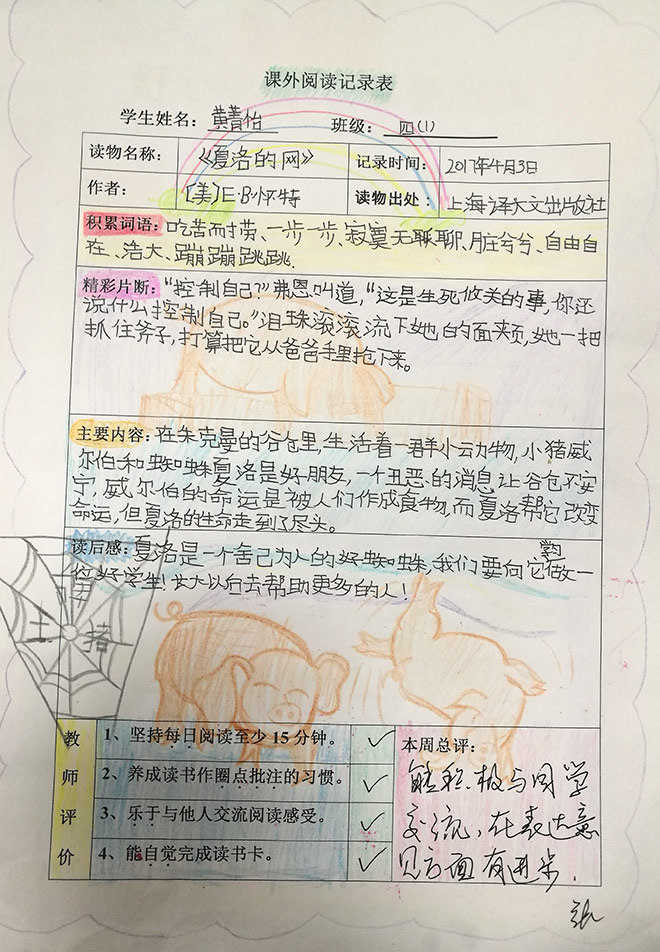 课外阅读记录表
学生姓名：黄菁怡 班级：四(1)
读物名称： 《夏洛的网》 记录时间： 2017年4月3日
作者： (美)E·B·怀特 读物出处： 上海译文出版社
积累词语：吃苦耐劳、一步一步、寂寞无聊聊、脏兮兮、自由自
在、浩大、蹦蹦跳跳.
精彩片断：“控制自己?”弗恩叫道，“这是生死攸关的事，你还
说什么控制自己。”泪珠滚滚流下她的面颊，她一把
抓住斧子，打算把它从爸爸手里抢下来。
主要内容：在朱克曼的谷仓里，生活着一群小动物，小猪威
尔伯和蜘蛛夏洛是好朋友，一个丑恶的消息让谷仓不安
宁，威尔伯的命运是被人们作成食物，而夏洛帮它改变
命运，但夏洛的生命走到了尽头。
读后感：夏洛是一个舍己为人的好蜘蛛，我们要向它做一
位好学生!长大以后去帮助更多的人!
王
土猪
教师评价
1、坚持每日阅读至少15分钟。 ✓
2、养成读书作圈点批注的习惯。 ✓
3、乐于与他人交流阅读感受。 ✓
4、能自觉完成读书卡。 ✓
本周总评：
能积极与同学
交流，在表达意
见方面有进步.
张